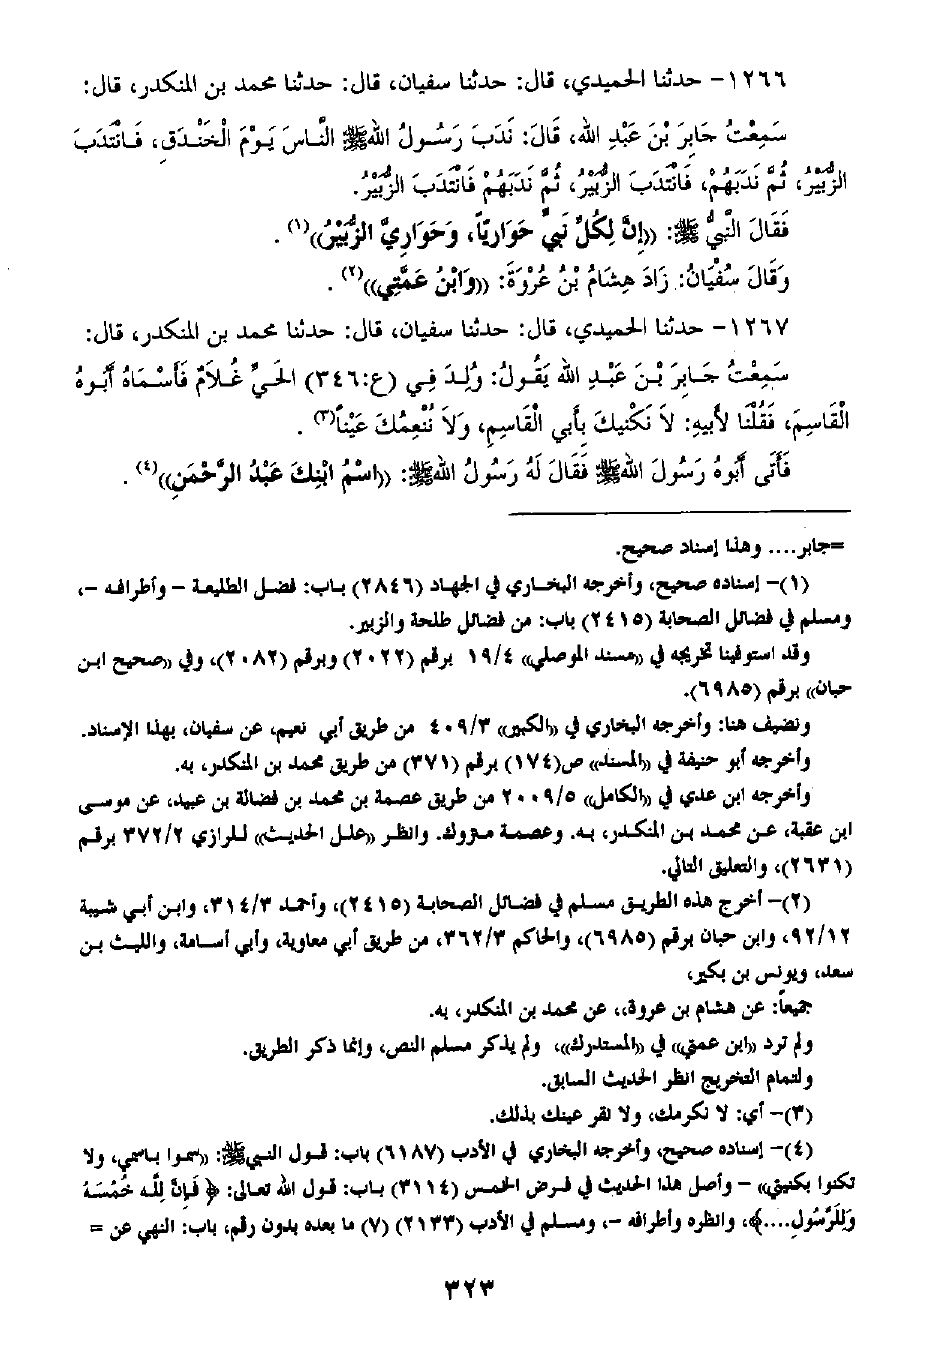 ١٢٦٦- حدثنا الحميدي، قال: حدثنا سفيان، قال: حدثنا محمد بن المنكدر، قال:
سَمِعْتُ جَابِرَ بْنَ عَبْدِ الله، قَالَ: نَدَبَ رَسُولُ اللهِ ﷺ النَّاسَ يَوْمَ الْخَنْدَقِ، فَانْتَدَبَ
الزُّبَيْرُ، ثُمَّ نَدَبَهُمْ، فَانْتَدَبَ الزُّبَيْرُ، ثُمَّ نَدَبَهُمْ فَانْتَدَبَ الزُّبَيْرُ.
فَقَالَ النَّبِيُّ ﷺ: ((إِنَّ لِكُلِّ نَبِيٍّ حَوَارِيّاً، وَحَوَارِيَّ الزُّبَيْرُ))(١) .
وَقَالَ سُفْيَانُ: زَادَ هِشَامُ بْنُ عُرْوَةَ: ((وَابْنُ عَمَّتِي))(٢) .
١٢٦٧- حدثنا الحميدي، قال: حدثنا سفيان، قال: حدثنا محمد بن المنكدر، قال:
سَمِعْتُ جَابِرَ بْنَ عَبْدِ الله يَقُولُ: وُلِدَ فِي (ع:٣٤٦) الحَيِّ غُلاَمٌ فَأَسْمَاهُ أَبُوهُ
الْقَاسِمَ، فَقُلْنَا لأَبِيهِ: لاَ نَكْنِيكَ بِأَبِي الْقَاسِمِ، وَلاَ نُنْعِمُكَ عَيْناً(٣) .
فَأَتَى أَبُوهُ رَسُولَ اللهِ ﷺ فَقَالَ لَهُ رَسُولُ اللهِ ﷺ: ((اسْمُ ابْنِكَ عَبْدُ الرَّحْمَنِ))(٤) .
=جابر.... وهذا إسناد صحيح.
(١)- إسناده صحيح، وأخرجه البخاري في الجهاد (٢٨٤٦) باب: فضل الطليعة - وأطرافه -،
ومسلم في فضائل الصحابة (٢٤١٥) باب: من فضائل طلحة والزبير.
وقد استوفينا تخريجه في ((مسند الموصلي)) ١٩/٤ برقم (٢٠٢٢) وبرقم (٢٠٨٢)، وفي ((صحيح ابن
حبان)) برقم (٦٩٨٥).
ونضيف هنا: وأخرجه البخاري في ((الكبير)) ٤٠٩/٣ من طريق أبي نعيم، عن سفيان، بهذا الإسناد.
وأخرجه أبو حنيفة في ((المسند)) ص(١٧٤) برقم (٣٧١) من طريق محمد بن المنكدر، به.
وأخرجه ابن عدي في ((الكامل)) ٢٠٠٩/٥ من طريق عصمة بن محمد بن فضالة بن عبيد، عن موسى
ابن عقبة، عن محمد بن المنكدر، به. وعصمة متروك. وانظر ((علل الحديث)) للرازي ٣٧٢/٢ برقم
(٢٦٣١)، والتعليق التالي.
(٢)- أخرج هذه الطريق مسلم في فضائل الصحابة (٢٤١٥)، وأحمد ٣١٤/٣، وابن أبي شيبة
٩٢/١٢، وابن حبان برقم (٦٩٨٥)، والحاكم ٣٦٢/٣، من طريق أبي معاوية، وأبي أسامة، والليث بن
سعد، ويونس بن بكير،
جميعاً: عن هشام بن عروة،، عن محمد بن المنكدر، به.
ولم ترد ((ابن عمتي)) في ((المستدرك))، ولم يذكر مسلم النص، وإنما ذكر الطريق.
ولتمام التخريج انظر الحديث السابق.
(٣)- أي: لا نكرمك، ولا نقر عينك بذلك.
(٤)- إسناده صحيح، وأخرجه البخاري في الأدب (٦١٨٧) باب: قول النبي ﷺ: ((سموا باسمي، ولا
تكنوا بكنيتي)) - وأصل هذا الحديث في فرض الخمس (٣١١٤) باب: قول الله تعالى: ﴿ فَإِنَّ لله خُمُسَهُ
وَلِلرَّسُولِ....﴾، وانظره وأطرافه -، ومسلم في الأدب (٢١٣٣) (٧) ما بعده بدون رقم، باب: النهي عن =
٣٢٣